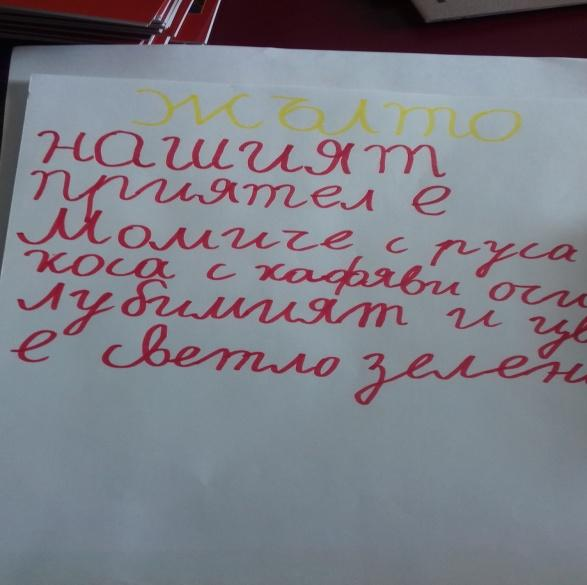 жълто
нашият
приятел е
Момиче с руса
коса с кафяви очи
лубимият и цв
е светло зелен